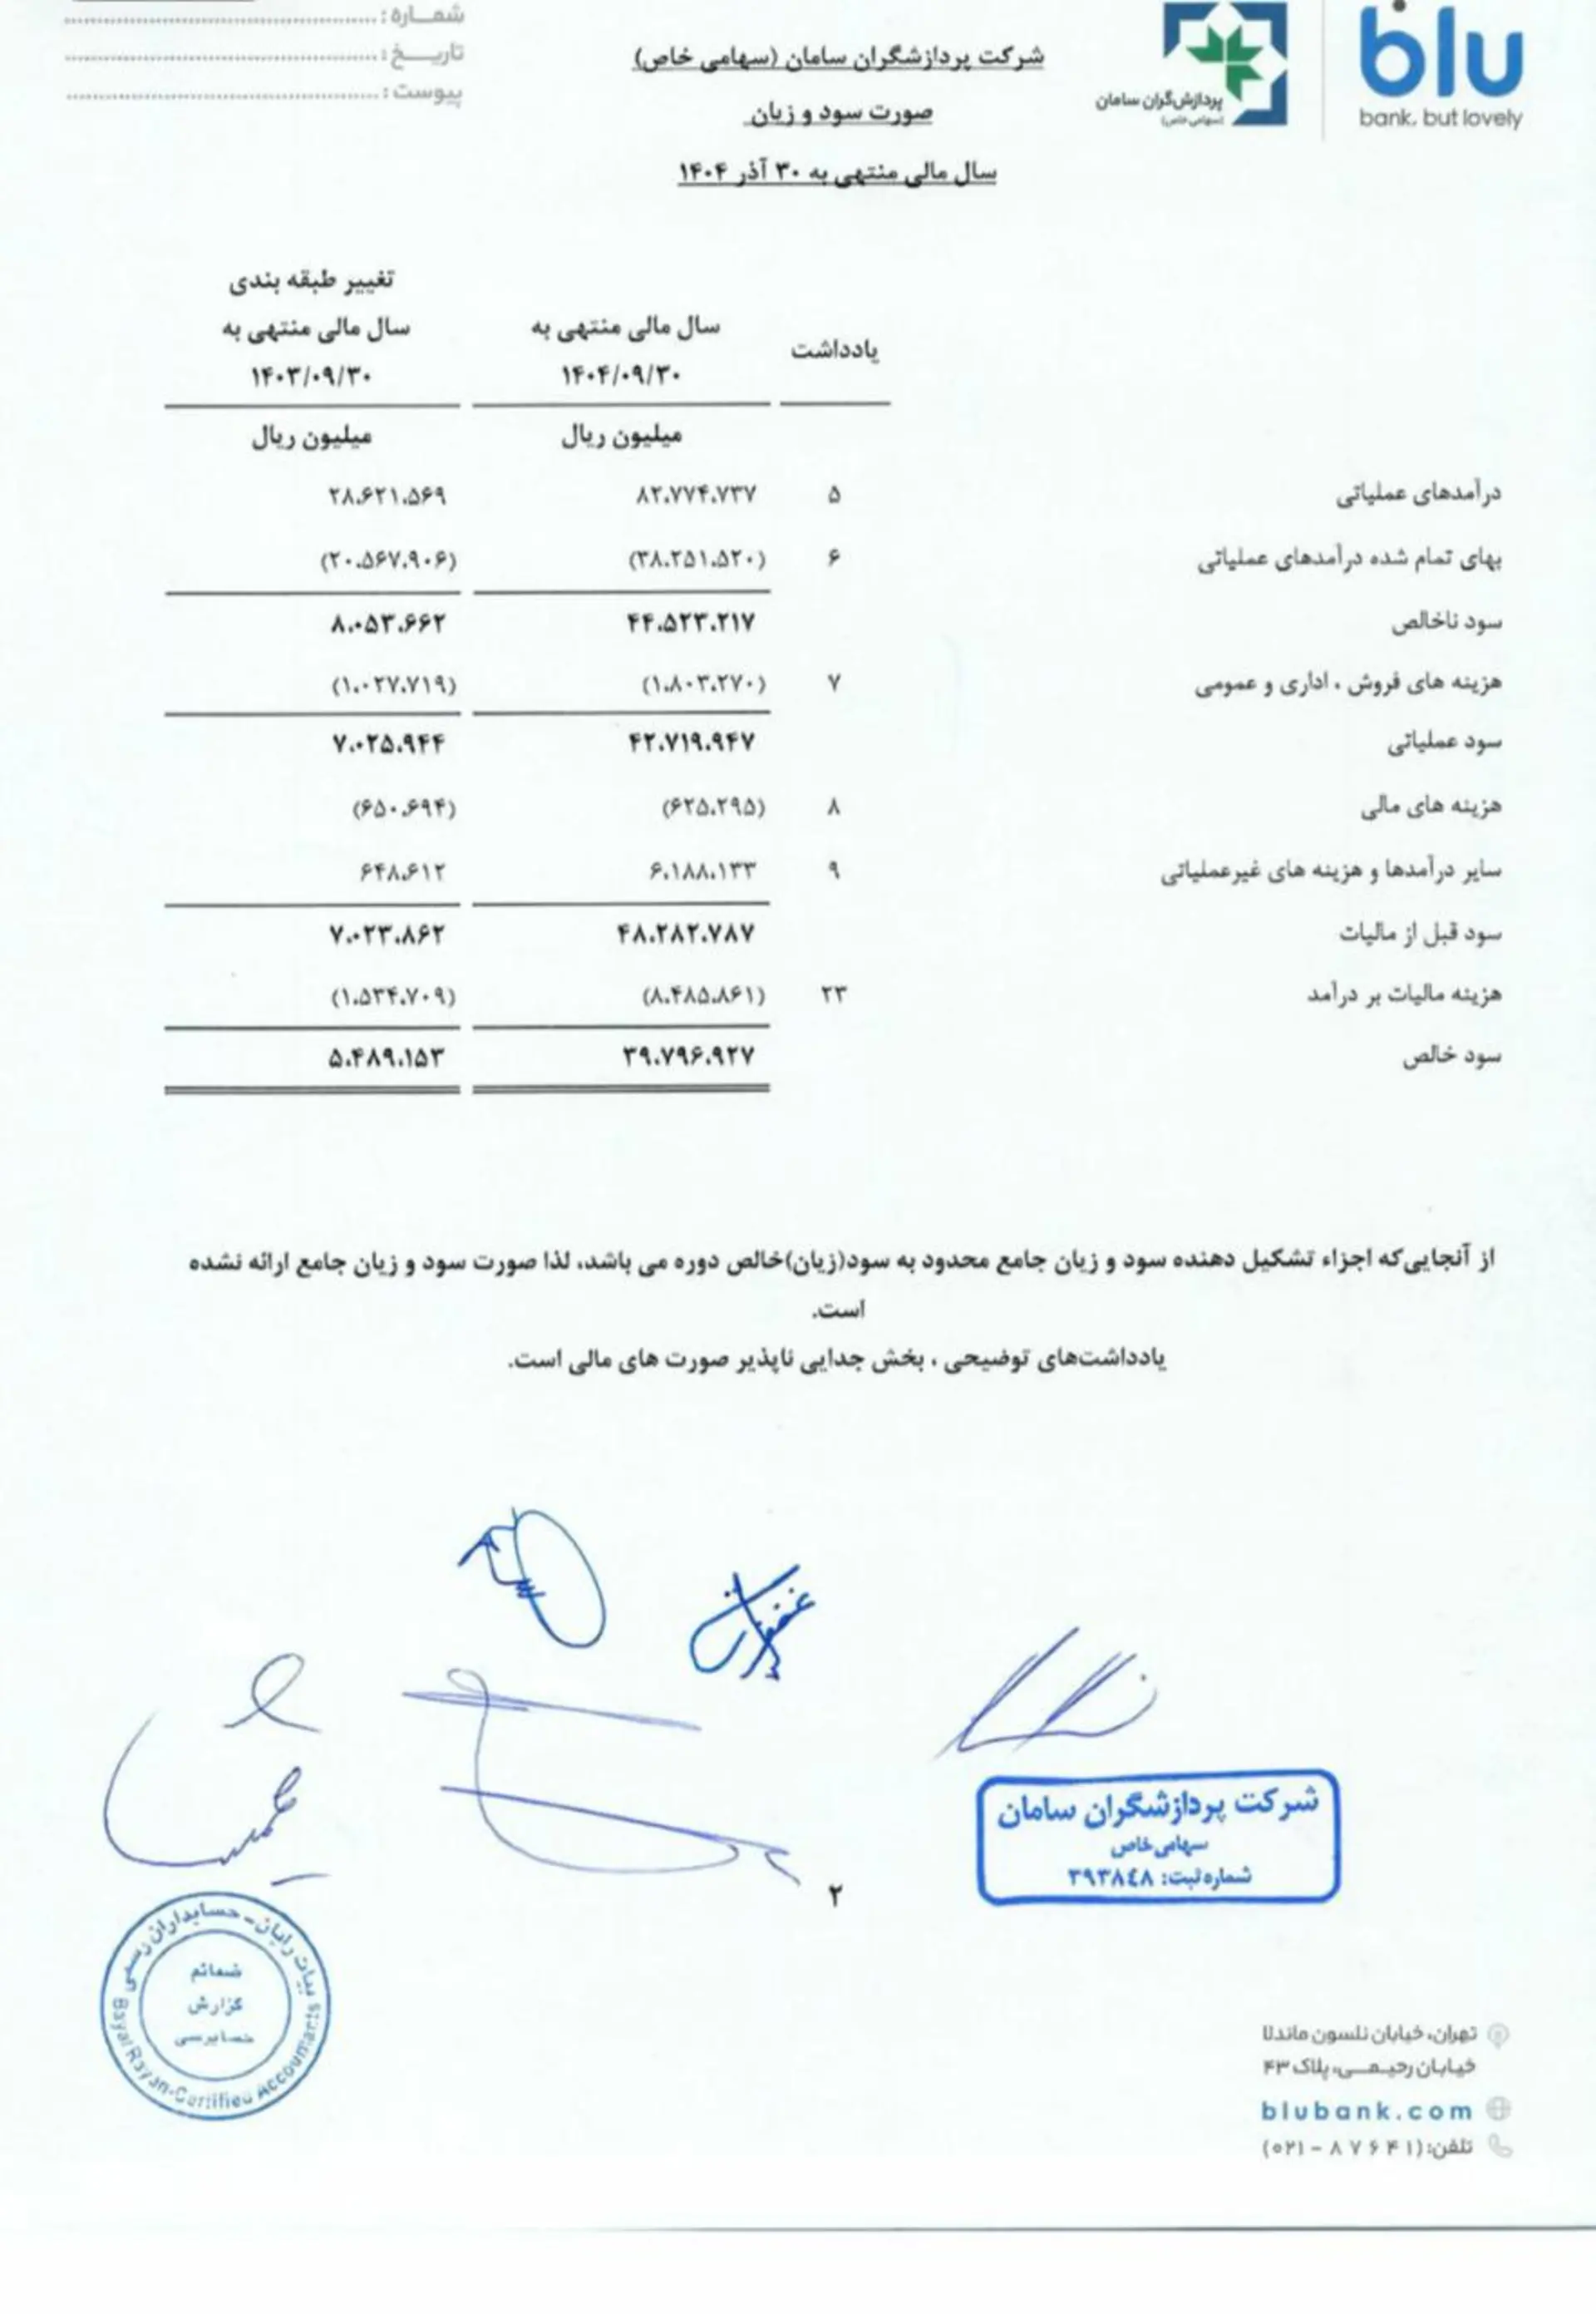 blu
bank, but lovely
پردازش‌گران سامان
(سهامی خاص)
شرکت پردازشگران سامان (سهامی خاص)
صورت سود و زیان
سال مالی منتهی به ۳۰ آذر ۱۴۰۴
شمــاره :
تاریــخ :
پیوست :
یادداشت
سال مالی منتهی به ۱۴۰۴/۰۹/۳۰
تغییر طبقه بندی سال مالی منتهی به ۱۴۰۳/۰۹/۳۰
میلیون ریال میلیون ریال
درآمدهای عملیاتی ۵ ۸۲،۷۷۴،۷۳۷ ۲۸،۶۲۱،۵۶۹
بهای تمام شده درآمدهای عملیاتی ۶ (۳۸،۲۵۱،۵۲۰) (۲۰،۵۶۷،۹۰۶)
سود ناخالص ۴۴،۵۲۳،۲۱۷ ۸،۰۵۳،۶۶۲
هزینه های فروش ، اداری و عمومی ۷ (۱،۸۰۳،۲۷۰) (۱،۰۲۷،۷۱۹)
سود عملیاتی ۴۲،۷۱۹،۹۴۷ ۷،۰۲۵،۹۴۴
هزینه های مالی ۸ (۶۲۵،۲۹۵) (۶۵۰،۶۹۴)
سایر درآمدها و هزینه های غیرعملیاتی ۹ ۶،۱۸۸،۱۳۳ ۶۴۸،۶۱۲
سود قبل از مالیات ۴۸،۲۸۲،۷۸۷ ۷،۰۲۳،۸۶۲
هزینه مالیات بر درآمد ۲۳ (۸،۴۸۵،۸۶۱) (۱،۵۳۴،۷۰۹)
سود خالص ۳۹،۷۹۶،۹۲۷ ۵،۴۸۹،۱۵۳
از آنجایی‌که اجزاء تشکیل دهنده سود و زیان جامع محدود به سود(زیان)خالص دوره می باشد، لذا صورت سود و زیان جامع ارائه نشده
است.
یادداشت‌های توضیحی ، بخش جدایی ناپذیر صورت های مالی است.
شرکت پردازشگران سامان
سهامی خاص
شماره ثبت: ۳۹۳۸٤۸
۲
بیات رایان - حسابداران رسمی
ضمائم
گزارش
حسابرسی
Bayat Rayan-Certified Accountants
تهران، خیابان نلسون ماندلا
خیابان رحیمــی، پلاک ۴۳
blubank.com
تلفن: (۰۲۱ - ۸۷۶۴۱)